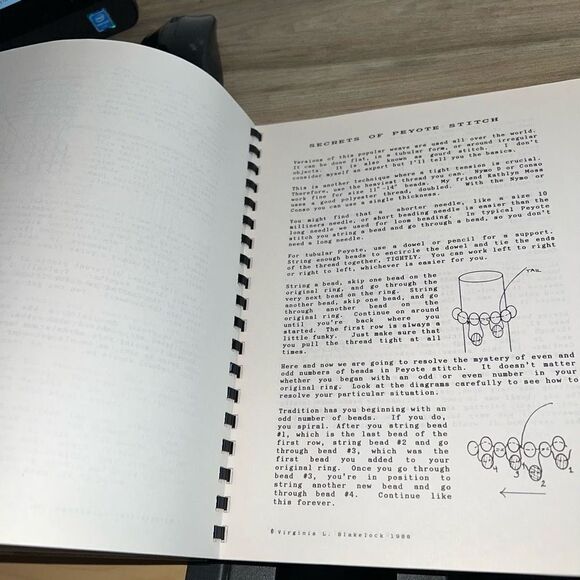 SECRETS OF PEYOTE STITCH
Versions of this popular weave are used all over the world.
It can be done flat, in a tubular form, or around irregular
objects. It is also known as gourd stitch. I don't
consider myself an expert but I'll tell you the basics.
This is another technique where a tight tension is crucial.
Therefore, use the heaviest thread you can. Nymo D or Conso
work fine for size 11°-14° beads. My friend Kathlyn Moss
uses a good polyester thread, doubled. With the Nymo or
Conso you can use a single thickness.
You might find that a shorter needle, like a size 10
milliners needle, or short beading needle is easier than the
long needle we used for loom beading. In typical Peyote
stitch you string a bead and go through a bead, so you don't
need a long needle.
For tubular Peyote, use a dowel or pencil for a support.
String enough beads to encircle the dowel and tie the ends
of the thread together, TIGHTLY. You can work left to right
or right to left, whichever is easier for you.
String a bead, skip one bead on the
original ring, and go through the
very next bead on the ring. String
another bead, skip one bead, and go
through another bead on the
original ring. Continue on around
until you're back where you
started. The first row is always a
little funky. Just make sure that
you pull the thread tight at all
times.
TAIL
Here and now we are going to resolve the mystery of even and
odd numbers of beads in Peyote stitch. It doesn't matter
whether you began with an odd or even number in your
original ring. Look at the diagrams carefully to see how to
resolve your particular situation.
Tradition has you beginning with an
odd number of beads. If you do,
you spiral. After you string bead
#1, which is the last bead of the
first row, string bead #2 and go
through bead #3, which was the
first bead you added to your
original ring. Once you go through
bead #3, you're in position to
string another new bead and go
through bead #4. Continue like
this forever.
4 3 2 1
© Virginia L. Blakelock 1988